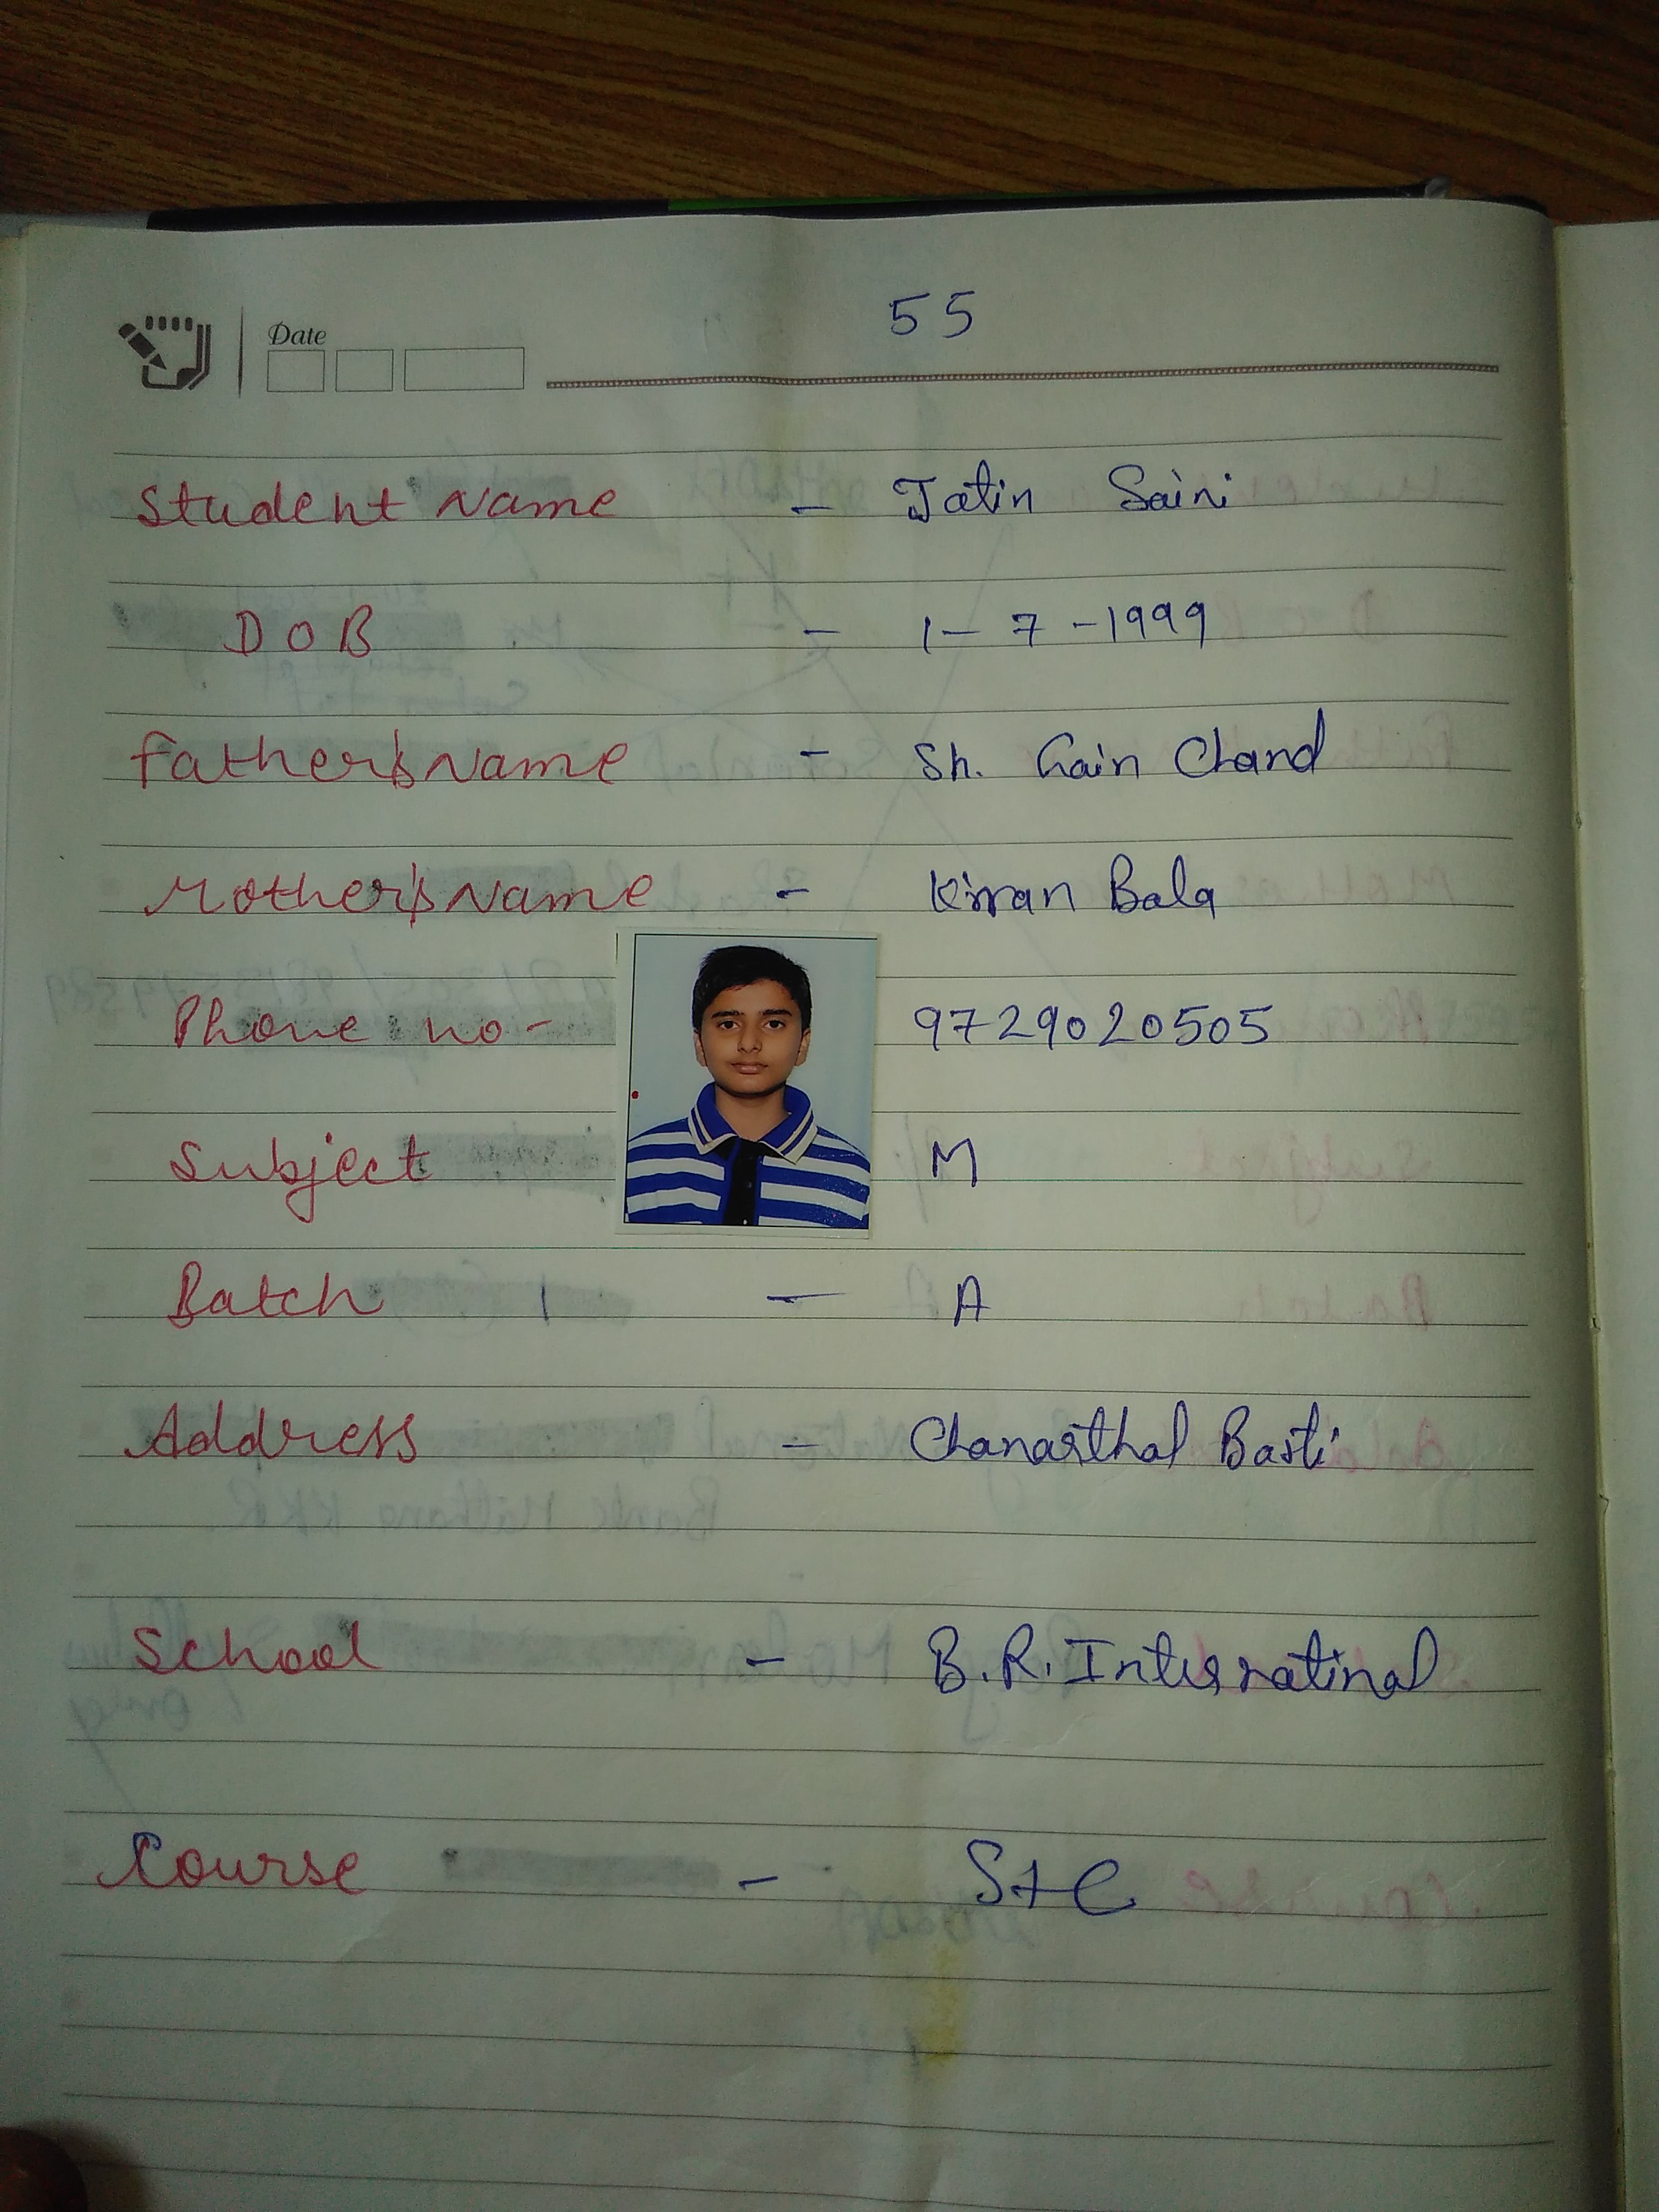 55
Date
Student Name - Jatin Saini
DOB - 1-7-1999
Father's Name - Sh. Gain Chand
Mother's Name - Kiran Bala
Phone no - 9729020505
Subject M
Batch - A
Address - Chanarthal Basti
School - B.R. Internatinal
Course -